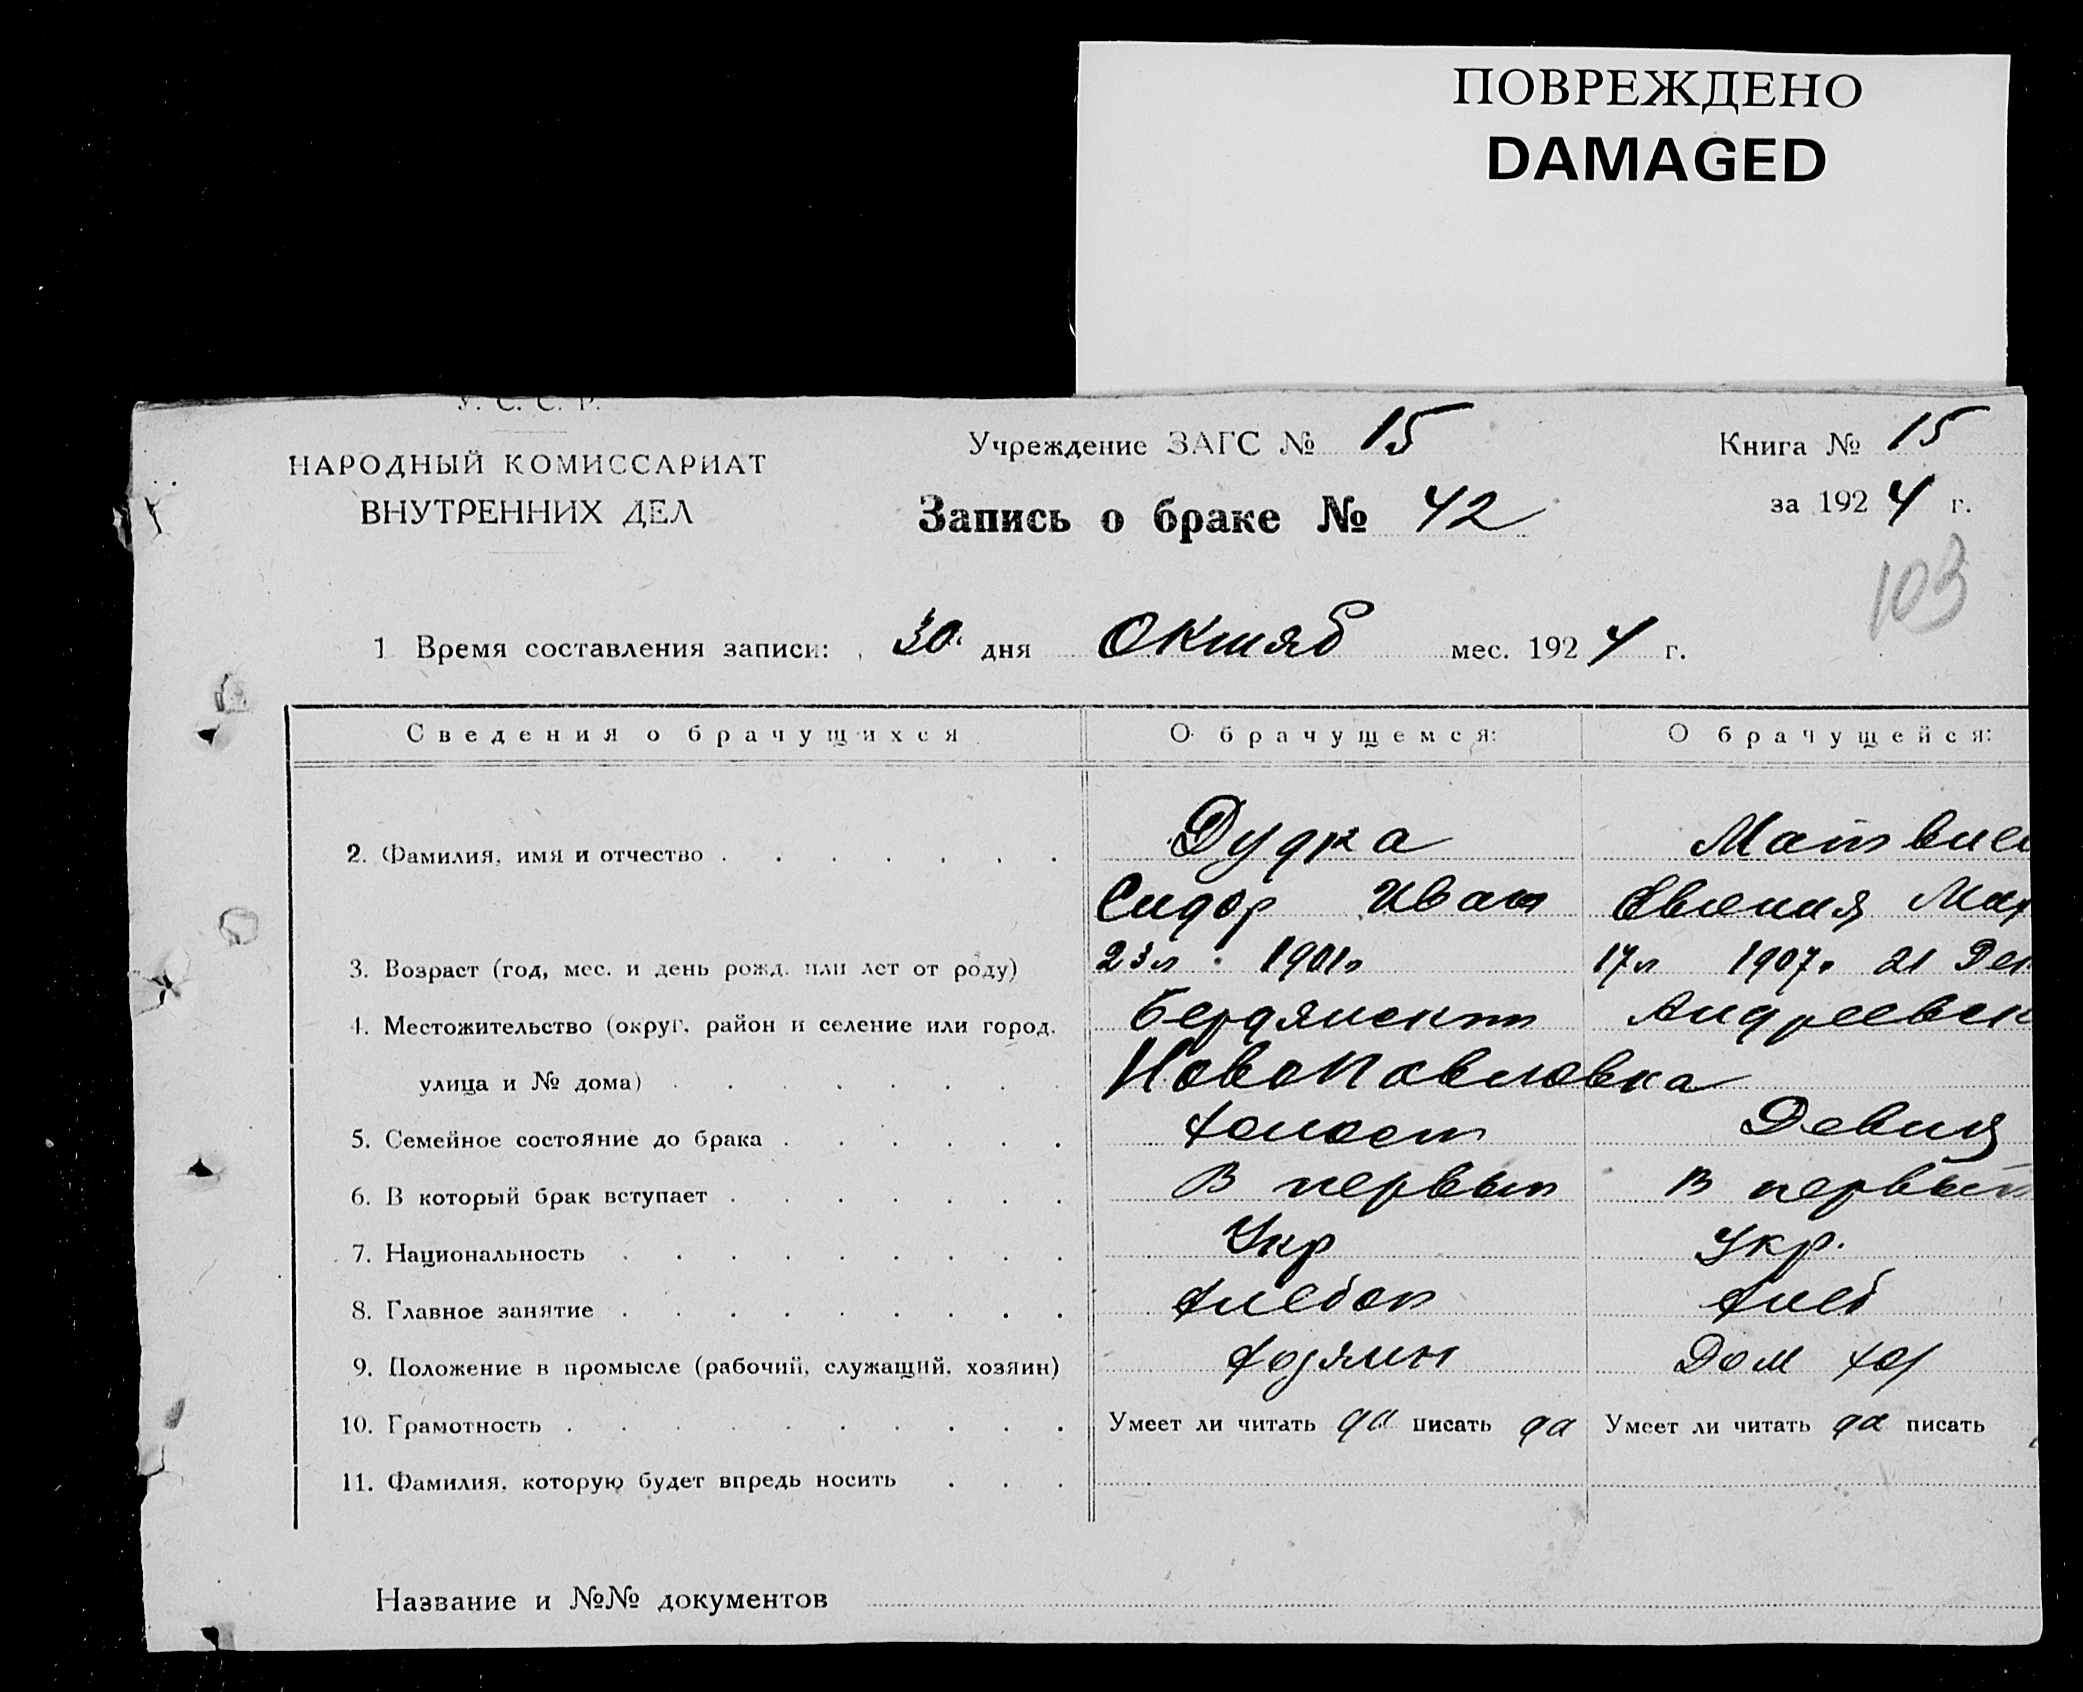 ПОВРЕЖДЕНО
DAMAGED
У. С. С. Р.
НАРОДНЫЙ КОМИССАРИАТ
ВНУТРЕННИХ ДЕЛ
Учреждение ЗАГС № 15
Книга № 15
Запись о браке № 42
за 1924 г.
103
1 Время составления записи: 30 дня Октяб мес. 1924 г.
Сведения о брачущихся О брачущемся: О брачущейся:
2. Фамилия, имя и отчество Дудка Матвие
Сидор Иван Евгения Мах
3. Возраст (год, мес. и день рожд. или лет от роду) 23 л 1901 г 17 л 1907 г. 21 Дек
4. Местожительство (округ, район и селение или город, Бердянский Андреевск
улица и № дома) Новопавловка
5. Семейное состояние до брака холост Девиця
6. В который брак вступает В первый В первый
7. Национальность Укр Укр.
8. Главное занятие хлебоп хлеб
9. Положение в промысле (рабочий, служащий, хозяин) хозяин Дом хоз
10. Грамотность Умеет ли читать да писать да Умеет ли читать да писать
11. Фамилия, которую будет впредь носить
Название и №№ документов